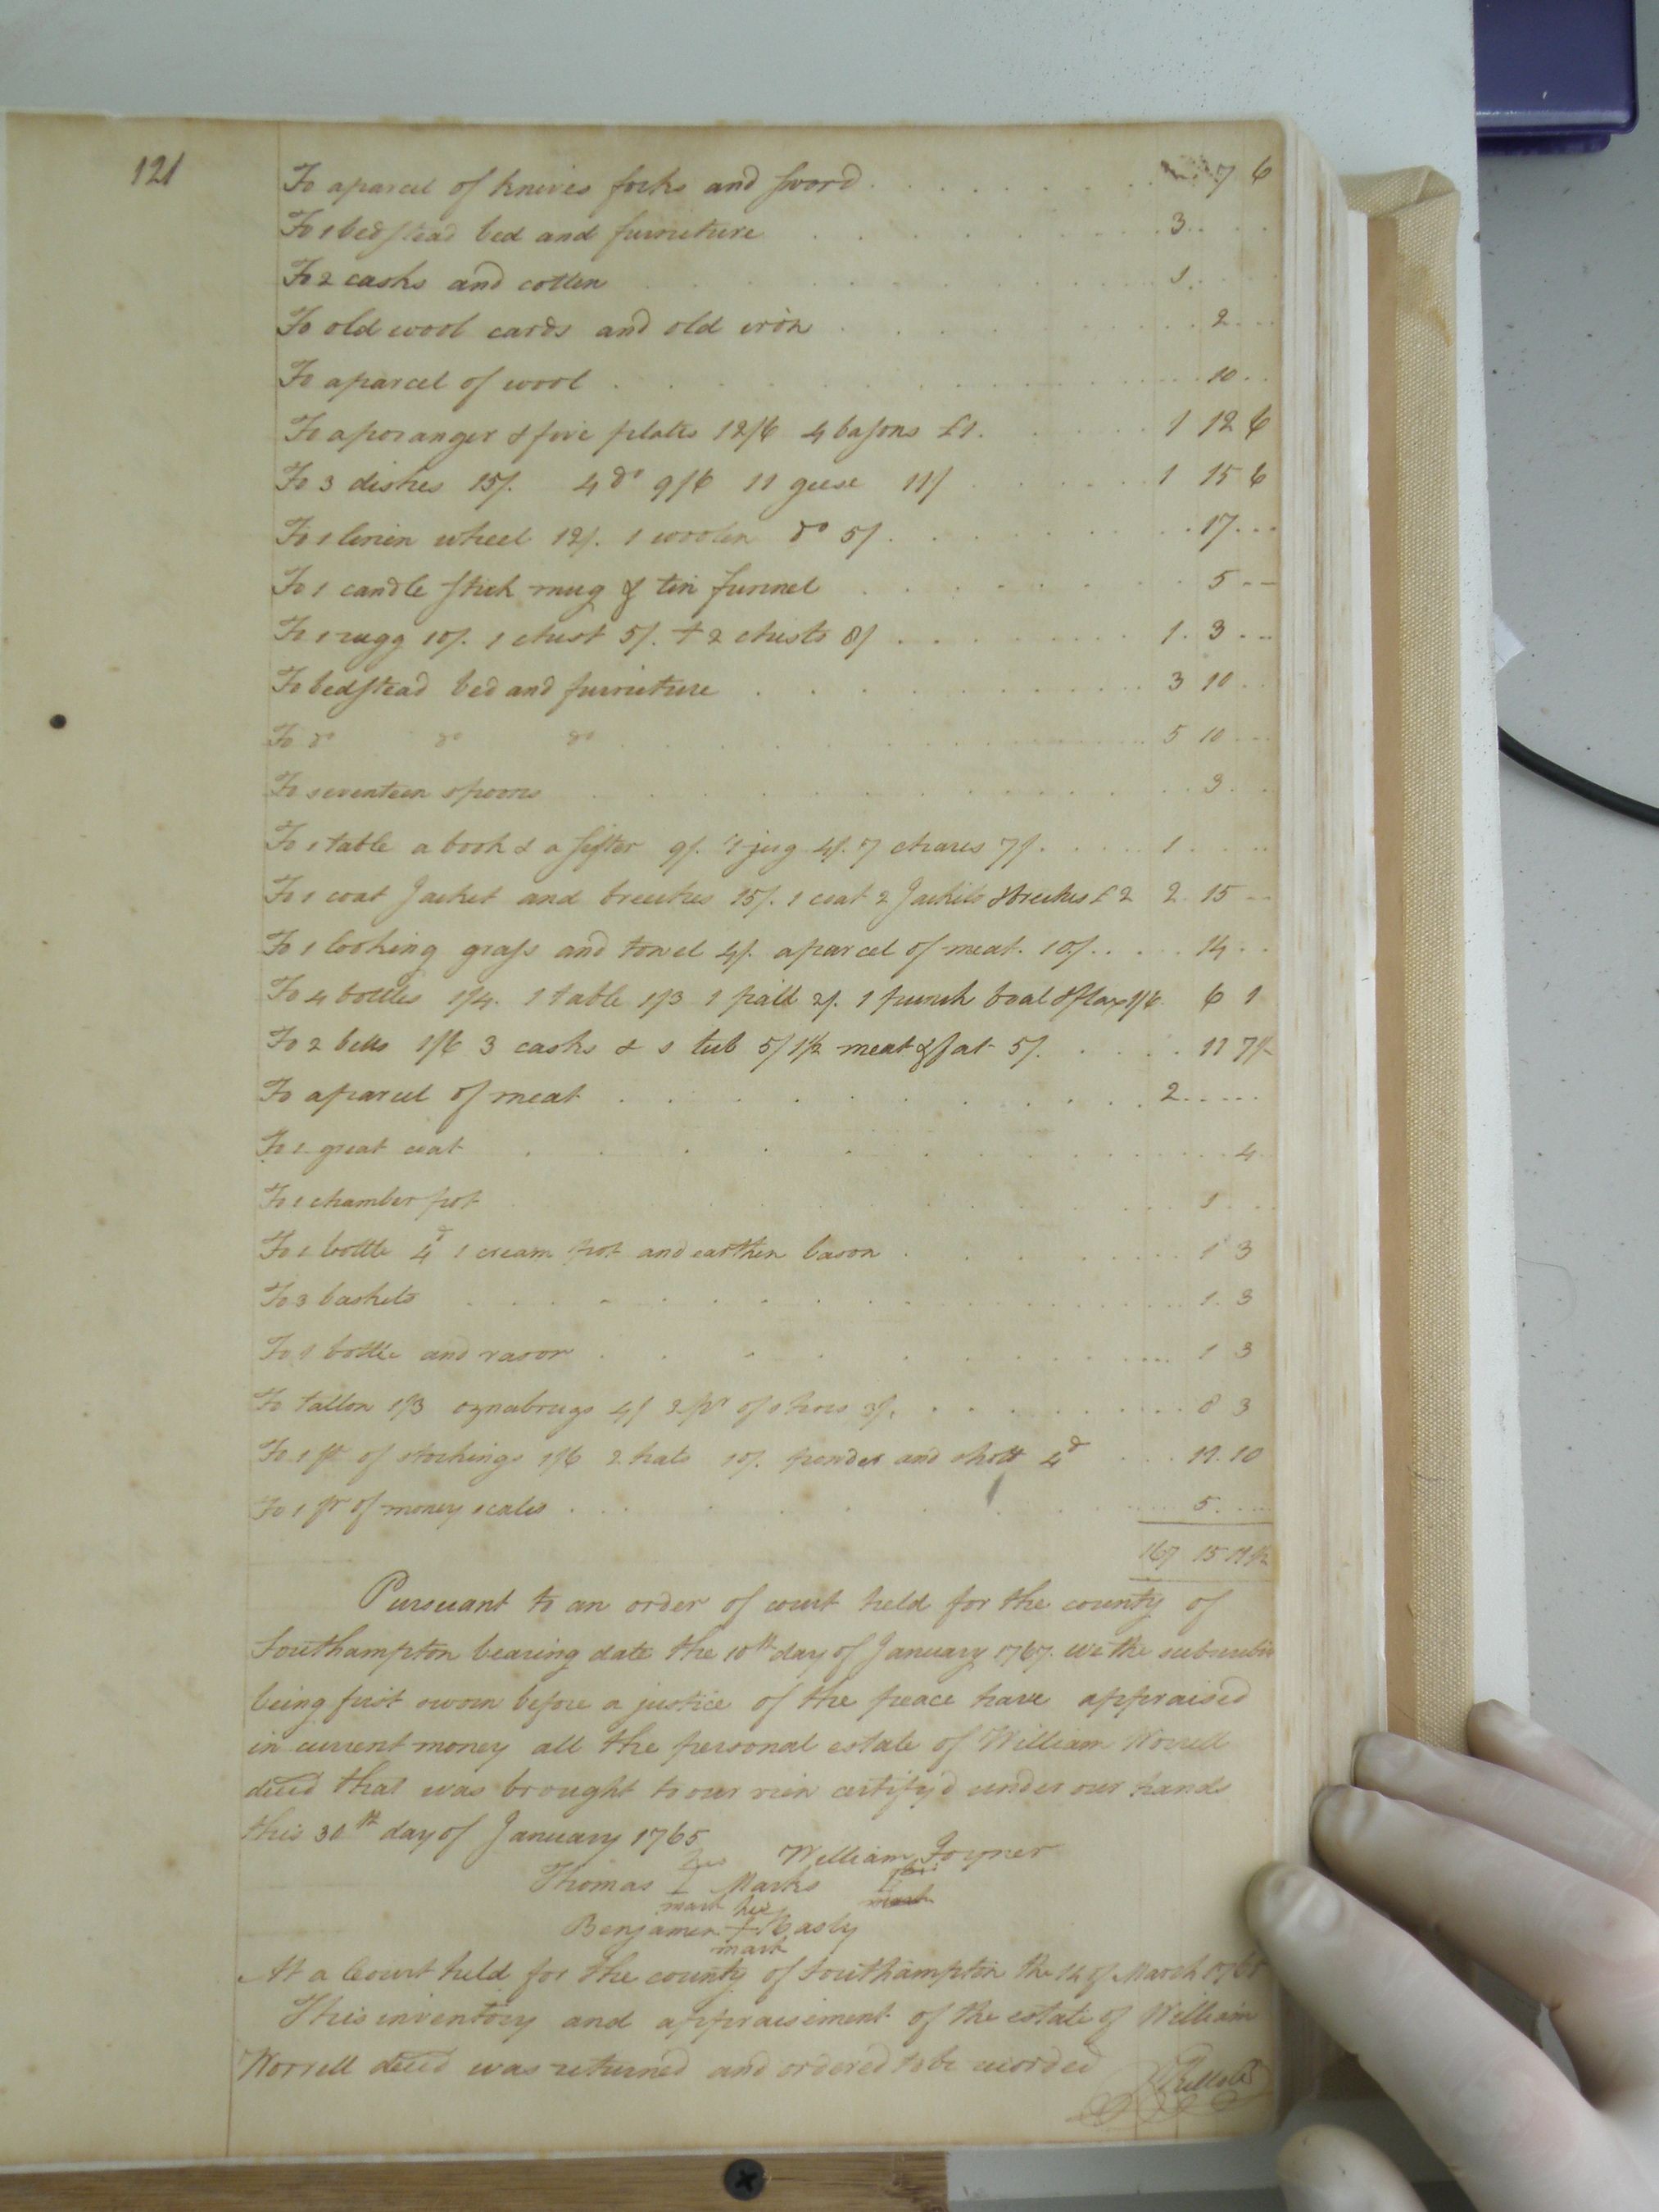 121
To aparcel of knives forks and sword . . . 7 6
To 1 bedstead bed and furniture . . . 3 . .
To 2 casks and cotten . . . 1 . .
To old wool cards and old iron . . . 2 . .
To aparcel of wool . . . 10 . .
To aporanger & five plates 12/6 4 basons £1. . . . 1 12 6
To 3 dishes 15/. 4 do 9/6 11 geese 11/ . . . 1 15 6
To 1 linin wheel 12/. 1 woolen do 5/. . . . 17 . .
To 1 candle stick mug & tin funnel . . . 5 - -
To 1 rugg 10/. 1 chest 5/. + 2 chests 8/ . . . 1 . 3 . .
To bedstead bed and furniture . . . 3 10 . .
To do do do . . . 5 10 . .
To seventeen spoons . . . 3 . .
To 1 table a book & a sifter 9/. 1 jug 4/. 7 chares 7/. . . . 1 . .
To 1 coat Jacket and breeches 15/. 1 coat 2 Jackets & breeches £2 2. 15 - -
To 1 looking grass and towel 4/. aparcel of meat. 10/. . . . 14 . .
To 4 bottles 1/4. 1 table 1/3 1 paill 2/. 1 punch boal & flax 1/6. 6 1
To 2 bells 1/6 3 casks & 1 tub 5/1½ meat & fat 5/. . . . 11 7½
To aparcel of meat . . . 2 . . .
To 1 great coat . . . 4
To 1 chamber pot . . . 1 . .
To 1 bottle 4d 1 cream pot and earthen bason . . . 1 3
To 3 baskets . . . 1. 3
To 1 bottle and rasor . . . 1 3
To tallon 1/3 oznabrugs 4/ 2 pr of shoes 3/. . . . 8 3
To 1 pr of stockings 1/6 2 hats 10/. powder and shott 4d . . . 11. 10
To 1 pr of money scales . . . 5 . .
167 15 11½
Pursuant to an order of court held for the county of
Southampton bearing date the 10th day of January 1767. we the subscribers
being first sworn before a justice of the peace have appraised
in current money all the personal estate of William Worrell
decd that was brought to our view certify'd under our hands
this 30th day of January 1765
his William Joyner
Thomas I Marks his
mark his mark
Benjamin +
mark
At a Court held for the county of Southampton the 14 of March 1765
This inventory and appraisement of the estate of William
Worrell decd was returned and ordered to be recorded